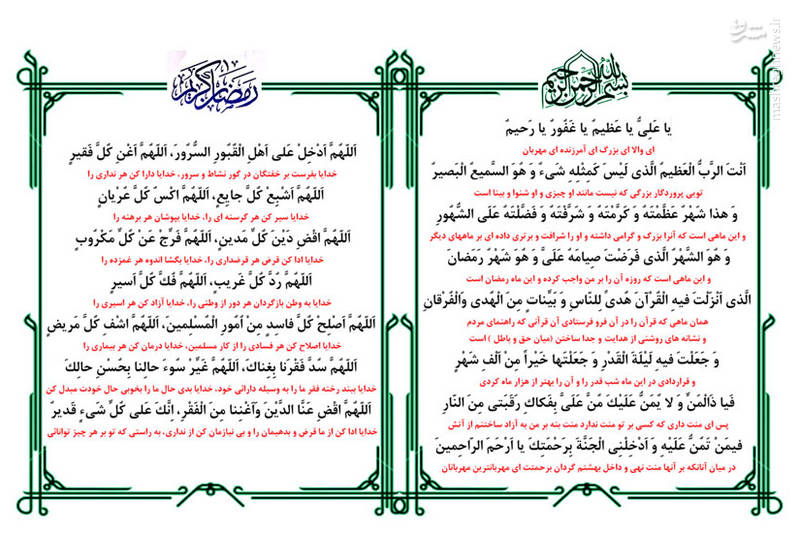 بسم الله الرحمن الرحیم
یا عَلِیُّ یا عَظیمُ یا غَفُورُ یا رَحیمُ
ای والا ای بزرگ ای آمرزنده ای مهربان
اَنْتَ الرَّبُّ الْعَظیمُ الَّذی لَیْسَ کَمِثْلِهِ شَیءٌ وَ هُوَ السَّمیعُ الْبَصیرُ
تویی پروردگار بزرگی که نیست مانند او چیزی و او شنوا و بینا است
وَ هذا شَهْرٌ عَظَّمْتَهُ وَ کَرَّمْتَهُ وَ شَرَّفْتَهُ وَ فَضَّلْتَهُ عَلَی الشُّهُورِ
و این ماهی است که آنرا بزرگ و گرامی داشته و او را شرافت و برتری داده ای بر ماههای دیگر
وَ هُوَ الشَّهْرُ الَّذی فَرَضْتَ صِیامَهُ عَلَیَّ وَ هُوَ شَهْرُ رَمَضانَ
و این ماهی است که روزه آن را بر من واجب کرده و این ماه رمضان است
الَّذی اَنْزَلْتَ فیهِ الْقُرْآنَ هُدیً لِلنّاسِ وَ بَیِّناتٍ مِنَ الْهُدی وَالْفُرْقانِ
همان ماهی که قرآن را در آن فرو فرستادی آن قرآنی که راهنمای مردم
و نشانه های روشنی از هدایت و جدا ساختن (میان حق و باطل ) است
وَ جَعَلْتَ فیهِ لَیْلَةَ الْقَدْرِ وَ جَعَلْتَها خَیْراً مِنْ اَلْفِ شَهْرٍ
و قراردادی در این ماه شب قدر را و آن را بهتر از هزار ماه کردی
فَیا ذَالْمَنِّ وَ لا یُمَنُّ عَلَیْکَ مُنَّ عَلَیَّ بِفَکاکِ رَقَبَتی مِنَ النّارِ
پس ای منت داری که کسی بر تو منت ندارد منت بنه بر من به آزاد ساختنم از آتش
فیمَنْ تَمُنُّ عَلَیْهِ وَ اَدْخِلْنِی الْجَنَّةَ بِرَحْمَتِکَ یا اَرْحَمَ الرّاحِمینَ
در میان آنانکه بر آنها منت نهی و داخل بهشتم گردان برحمتت ای مهربانترین مهربانان
رمضان کریم
اَللّهُمَّ اَدْخِلْ عَلی اَهْلِ الْقُبُورِ السُّرُورَ، اَللّهُمَّ اَغْنِ کُلَّ فَقیرٍ
خدایا بفرست بر خفتگان در گور نشاط و سرور، خدایا دارا کن هر نداری را
اَللّهُمَّ اَشْبِعْ کُلَّ جایِعٍ، اَللّهُمَّ اکْسُ کُلَّ عُرْیانٍ
خدایا سیر کن هر گرسنه ای را، خدایا بپوشان هر برهنه را
اَللّهُمَّ اقْضِ دَیْنَ کُلِّ مَدینٍ، اَللّهُمَّ فَرِّجْ عَنْ کُلِّ مَکْرُوبٍ
خدایا ادا کن قرض هر قرضداری را، خدایا بگشا اندوه هر غمزده را
اَللّهُمَّ رُدَّ کُلَّ غَریبٍ، اَللّهُمَّ فُکَّ کُلَّ اَسیرٍ
خدایا به وطن بازگردان هر دور از وطنی را، خدایا آزاد کن هر اسیری را
اَللّهُمَّ اَصْلِحْ کُلَّ فاسِدٍ مِنْ اُمُورِ الْمُسْلِمینَ، اَللّهُمَّ اشْفِ کُلَّ مَریضٍ
خدایا اصلاح کن هر فسادی را از کار مسلمین، خدایا درمان کن هر بیماری را
اَللّهُمَّ سُدَّ فَقْرَنا بِغِناکَ، اَللّهُمَّ غَیِّرْ سُوءَ حالِنا بِحُسْنِ حالِکَ
خدایا ببند رخنه فقر ما را به وسیله دارائی خود، خدایا بدی حال ما را بخوبی حال خودت مبدل کن
اَللّهُمَّ اقْضِ عَنَّا الدَّیْنَ وَاَغْنِنا مِنَ الْفَقْرِ، اِنَّکَ عَلی کُلِّ شَیءٍ قَدیرٌ
خدایا ادا کن از ما قرض و بدهیمان را و بی نیازمان کن از نداری، به راستی که تو بر هر چیز توانائی
mashreghnews.ir